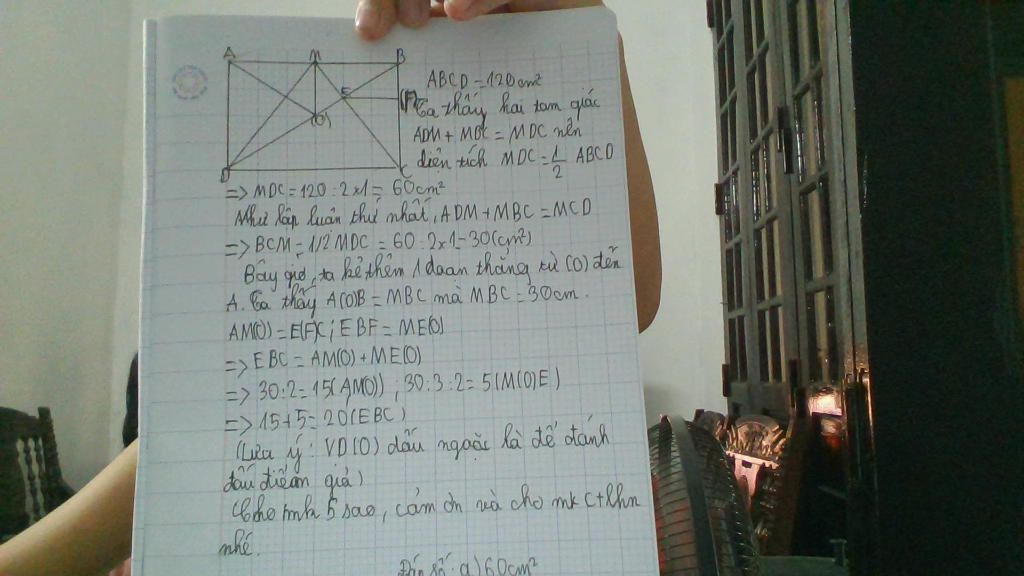 A M B
E (F)
(O)
D C
ABCD = 120cm²
Ta thấy hai tam giác
ADM + MBC = MDC nên
diện tích MDC = 1/2 ABCD
=> MDC = 120 : 2 x 1 = 60cm²
Như lập luận thứ nhất, ADM + MBC = MCD
=> BCM = 1/2 MDC = 60 : 2 x 1 = 30(cm²)
Bây giờ, ta kẻ thêm 1 đoạn thẳng từ (O) đến
A. Ta thấy A(O)B = MBC mà MBC = 30cm.
AM(O) = E(F)C ; EBF = ME(O)
=> EBC = AM(O) + ME(O)
=> 30 : 2 = 15(AM(O)) ; 30 : 3 : 2 = 5(M(O)E)
=> 15 + 5 = 20(EBC)
(Lưu ý : VD(O) dấu ngoặc là để đánh
dấu điểm giả)
Cho mk 5 sao, cảm ơn và cho mk ctlhn
nhé.
Đáp số : a) 60cm²